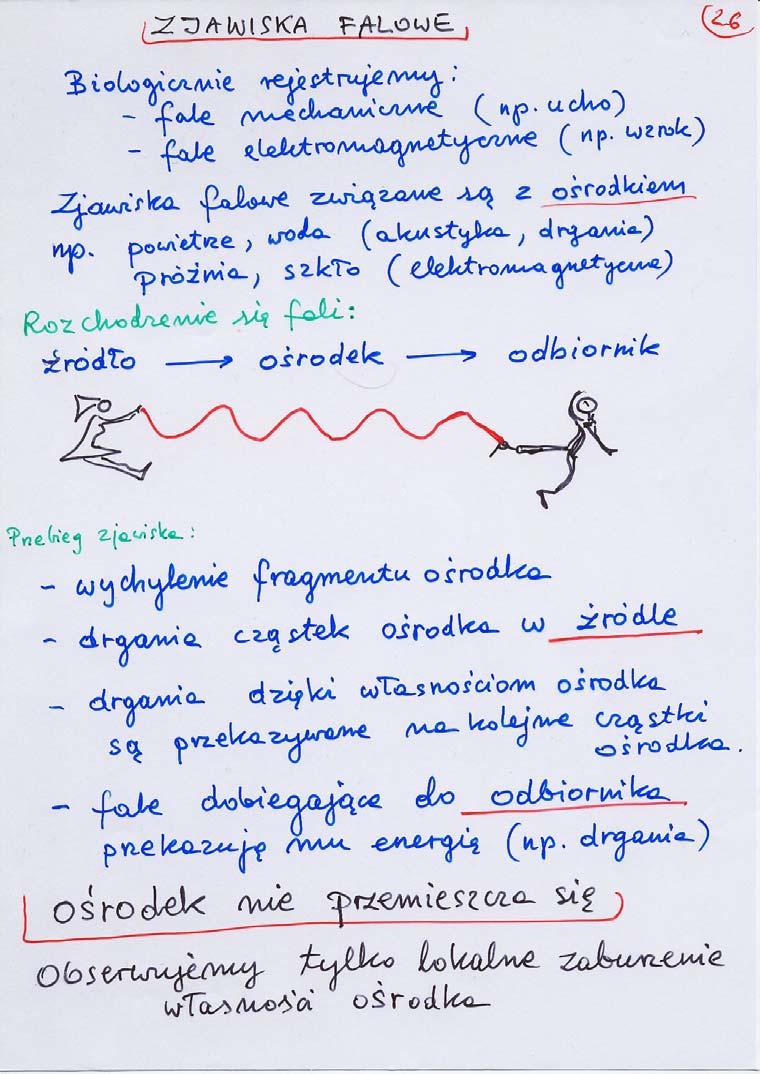 ZJAWISKA FALOWE
26
Biologicznie rejestrujemy:
- fale mechaniczne (np. ucho)
- fale elektromagnetyczne (np. wzrok)
Zjawiska falowe związane są z ośrodkiem
np. powietrze, woda (akustyka, drgania)
próżnia, szkło (elektromagnetyczne)
Rozchodzenie się fali:
źródło → ośrodek → odbiornik
Przebieg zjawiska:
- wychylenie fragmentu ośrodka
- drgania cząstek ośrodka w źródle
- drgania dzięki własnościom ośrodka
są przekazywane na kolejne cząstki
ośrodka.
- fale dobiegające do odbiornika
przekazują mu energię (np. drgania)
Ośrodek nie przemieszcza się
Obserwujemy tylko lokalne zaburzenie
własności ośrodka